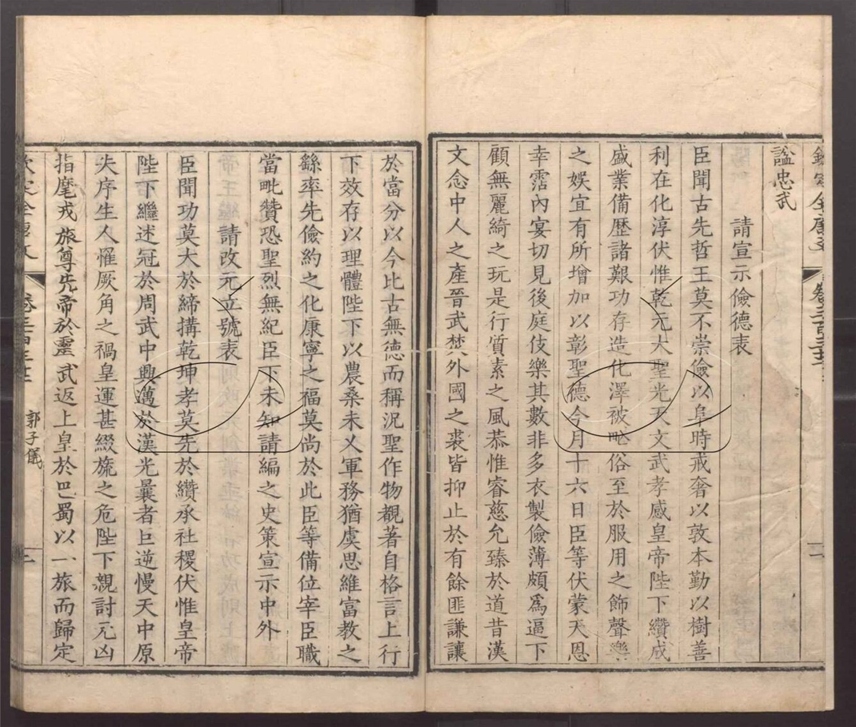 諡忠武
請宣示儉德表
臣聞古先哲王莫不崇儉以阜時戒奢以敦本勤以樹善
利在化淳伏惟乾元大聖光天文武孝感皇帝陛下纘成
盛業備歷諸艱功存造化澤被甿俗至於服用之飾聲樂
之娛宜有所增加以彰聖德今月十六日臣等伏蒙天恩
幸霑內宴切見後庭伎樂其數非多衣製儉薄頗爲逼下
顧無麗綺之玩是行質素之風恭惟睿慈允臻於道昔漢
文念中人之產晉武焚外國之裘皆抑止於有餘匪謙讓
於當分以今比古無德而稱況聖作物覩著自格言上行
下效存以理體陛下以農桑未乂軍務猶虞思維富教之
繇率先儉約之化康寧之福莫尚於此臣等備位宰臣職
當毗贊恐聖烈無紀臣下未知請編之史策宣示中外
請改元立號表
臣聞功莫大於締搆乾坤孝莫先於纘承社稷伏惟皇帝
陛下繼述冠於周武中興邁於漢光曩者巨逆慢天中原
失序生人罹厥角之禍皇運甚綴旒之危陛下親討元凶
指麾戎旅尊先帝於靈武返上皇於巴蜀以一旅而歸定
郭子儀
二